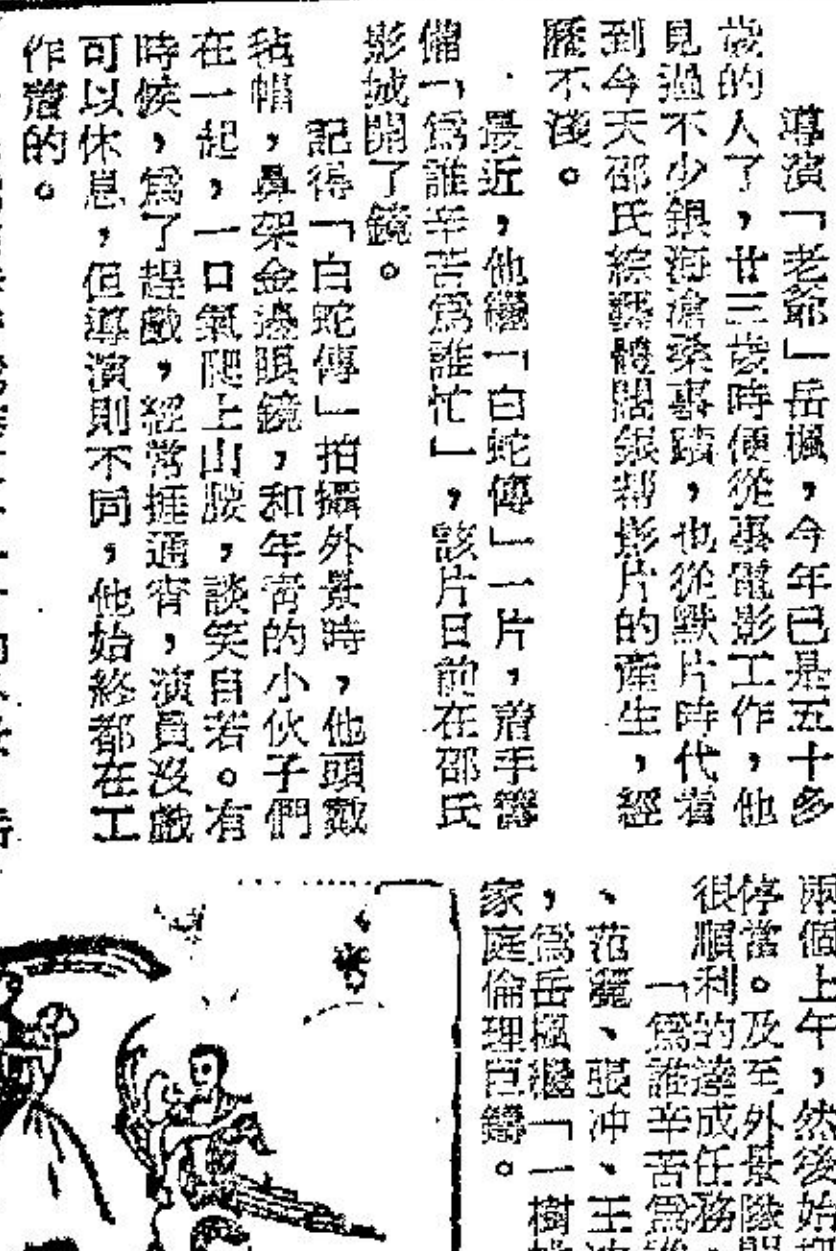 導演「老爺」岳楓，今年已是五十多
歲的人了，廿三歲時便從事電影工作，他
見過不少銀海滄桑事蹟，也從默片時代看
到今天邵氏綜藝體闊銀幕影片的產生，經
歷不淺。
最近，他繼「白蛇傳」一片，着手籌
備「為誰辛苦為誰忙」，該片日前在邵氏
影城開了鏡。
記得「白蛇傳」拍攝外景時，他頭戴
毡帽，鼻架金邊眼鏡，和年青的小伙子們
在一起，一口氣爬上山腰，談笑自若。有
時候，為了趕戲，經常捱通宵，演員沒戲
可以休息，但導演則不同，他始終都在工
作着的。
兩個上午，然後始
停當。及至外景隊
很順利的達成任務
「為誰辛苦為
、范麗、張冲、王
，為岳楓繼「一樹
家庭倫理巨鑄。